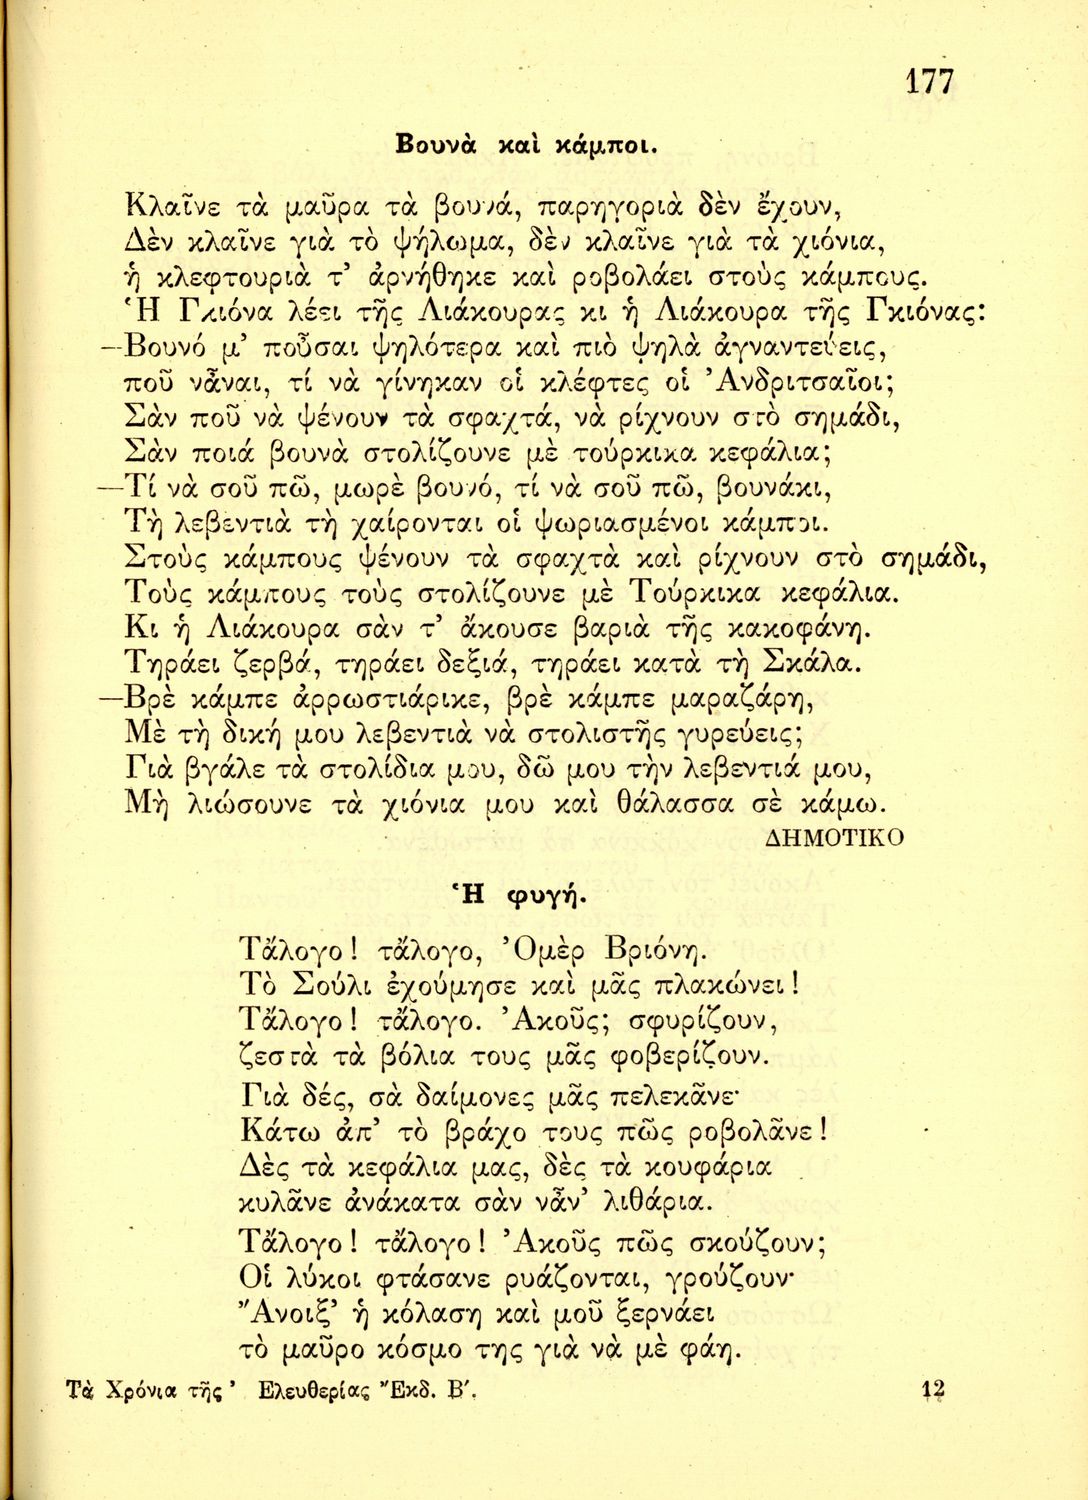 177
Βουνὰ καὶ κάμποι.
Κλαῖνε τὰ μαῦρα τὰ βουνά, παρηγοριὰ δὲν ἔχουν,
Δὲν κλαῖνε γιὰ τὸ ψήλωμα, δὲν κλαῖνε γιὰ τὰ χιόνια,
ἡ κλεφτουριὰ τ’ ἀρνήθηκε καὶ ροβολάει στοὺς κάμπους.
Ἡ Γκιόνα λέει τῆς Λιάκουρας κι ἡ Λιάκουρα τῆς Γκιόνας:
—Βουνό μ’ ποὖσαι ψηλότερα καὶ πιὸ ψηλὰ ἀγναντεύεις,
ποῦ νἆναι, τί νὰ γίνηκαν οἱ κλέφτες οἱ Ἀνδριτσαῖοι;
Σὰν ποῦ νὰ ψένουν τὰ σφαχτά, νὰ ρίχνουν στὸ σημάδι,
Σὰν ποιά βουνὰ στολίζουνε μὲ τούρκικα κεφάλια;
—Τί νὰ σοῦ πῶ, μωρὲ βουνό, τί νὰ σοῦ πῶ, βουνάκι,
Τὴ λεβεντιὰ τὴ χαίρονται οἱ ψωριασμένοι κάμποι.
Στοὺς κάμπους ψένουν τὰ σφαχτὰ καὶ ρίχνουν στὸ σημάδι,
Τοὺς κάμπους τοὺς στολίζουνε μὲ Τούρκικα κεφάλια.
Κι ἡ Λιάκουρα σὰν τ’ ἄκουσε βαριὰ τῆς κακοφάνη.
Τηράει ζερβά, τηράει δεξιά, τηράει κατὰ τὴ Σκάλα.
—Βρὲ κάμπε ἀρρωστιάρικε, βρὲ κάμπε μαραζάρη,
Μὲ τὴ δική μου λεβεντιὰ νὰ στολιστῆς γυρεύεις;
Γιὰ βγάλε τὰ στολίδια μου, δῶ μου τὴν λεβεντιά μου,
Μὴ λιώσουνε τὰ χιόνια μου καὶ θάλασσα σὲ κάμω.
ΔΗΜΟΤΙΚΟ
Ἡ φυγή.
Τἄλογο! τἄλογο, Ὀμὲρ Βριόνη.
Τὸ Σούλι ἐχούμησε καὶ μᾶς πλακώνει!
Τἄλογο! τἄλογο. Ἀκοῦς; σφυρίζουν,
ζεστὰ τὰ βόλια τους μᾶς φοβερίζουν.
Γιὰ δές, σὰ δαίμονες μᾶς πελεκᾶνε·
Κάτω ἀπ’ τὸ βράχο τους πῶς ροβολᾶνε!
Δὲς τὰ κεφάλια μας, δὲς τὰ κουφάρια
κυλᾶνε ἀνάκατα σὰν νἆν’ λιθάρια.
Τἄλογο! τἄλογο! Ἀκοῦς πῶς σκούζουν;
Οἱ λύκοι φτάσανε ρυάζονται, γρούζουν·
Ἄνοιξ’ ἡ κόλαση καὶ μοῦ ξερνάει
τὸ μαῦρο κόσμο της γιὰ νὰ μὲ φάη.
Τὰ Χρόνια τῆς ’ Ελευθερίας Ἔκδ. Β′. 12